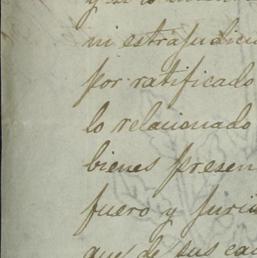 y si lo
ni estrajudici
por ratificado
lo relacionado
bienes presen
fuero y juris
que de sus ca